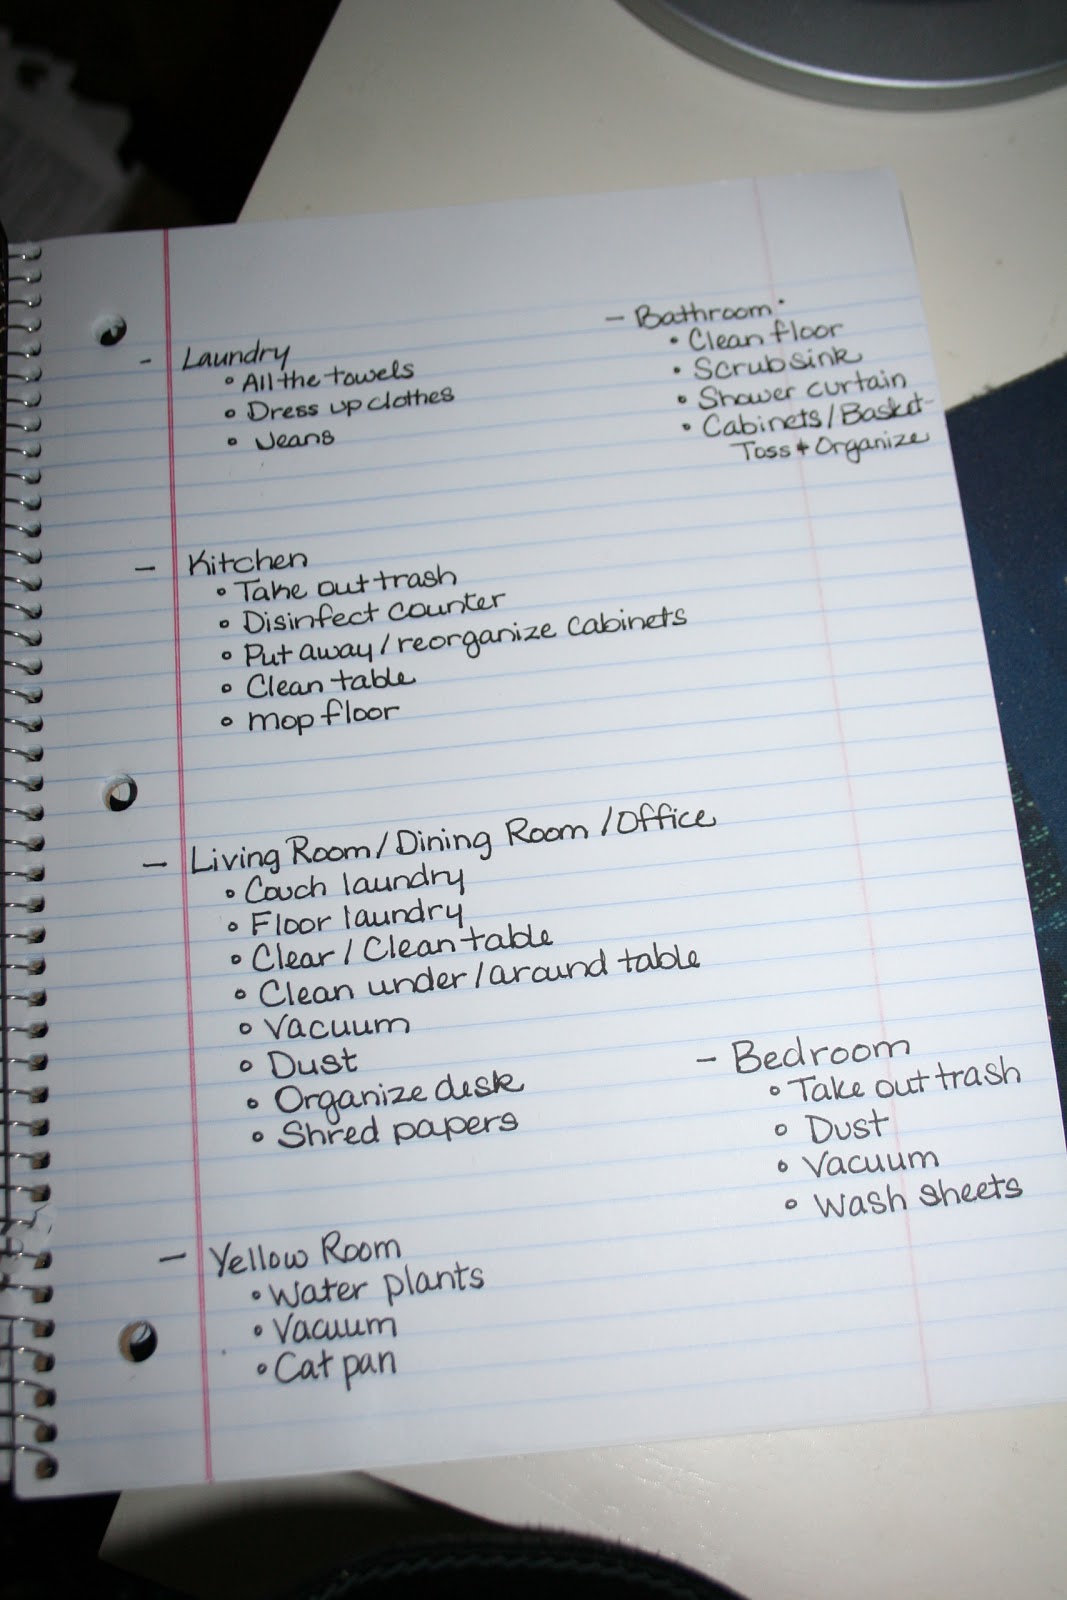 - Laundry
• All the towels
• Dress up clothes
• Jeans
- Bathroom
• Clean floor
• Scrub sink
• Shower curtain
• Cabinets/Basket-
Toss + Organize
- Kitchen
• Take out trash
• Disinfect counter
• Put away/reorganize cabinets
• Clean table
• mop floor
- Living Room/Dining Room/Office
• Couch laundry
• Floor laundry
• Clear/Clean table
• Clean under/around table
• Vacuum
• Dust
• Organize desk
• Shred papers
- Bedroom
• Take out trash
• Dust
• Vacuum
• Wash sheets
- Yellow Room
• Water plants
• Vacuum
• Cat pan